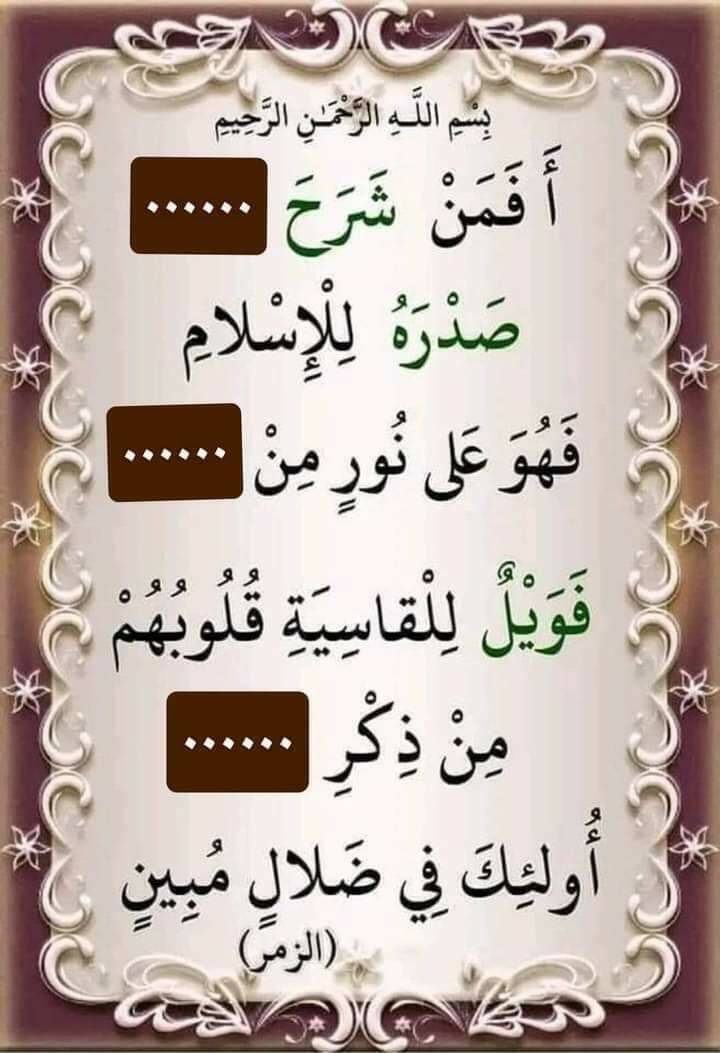 بِسْمِ اللَّـهِ الرَّحْمَـٰنِ الرَّحِيمِ
أَ فَمَنْ شَرَحَ ......
صَدْرَهُ لِلْإِسْلامِ
فَهُوَ عَلى نُورٍ مِنْ ......
فَوَيْلٌ لِلْقاسِيَةِ قُلُوبُهُمْ
مِنْ ذِكْرِ ......
أُولئِكَ فِي ضَلالٍ مُبِينٍ
(الزمر)